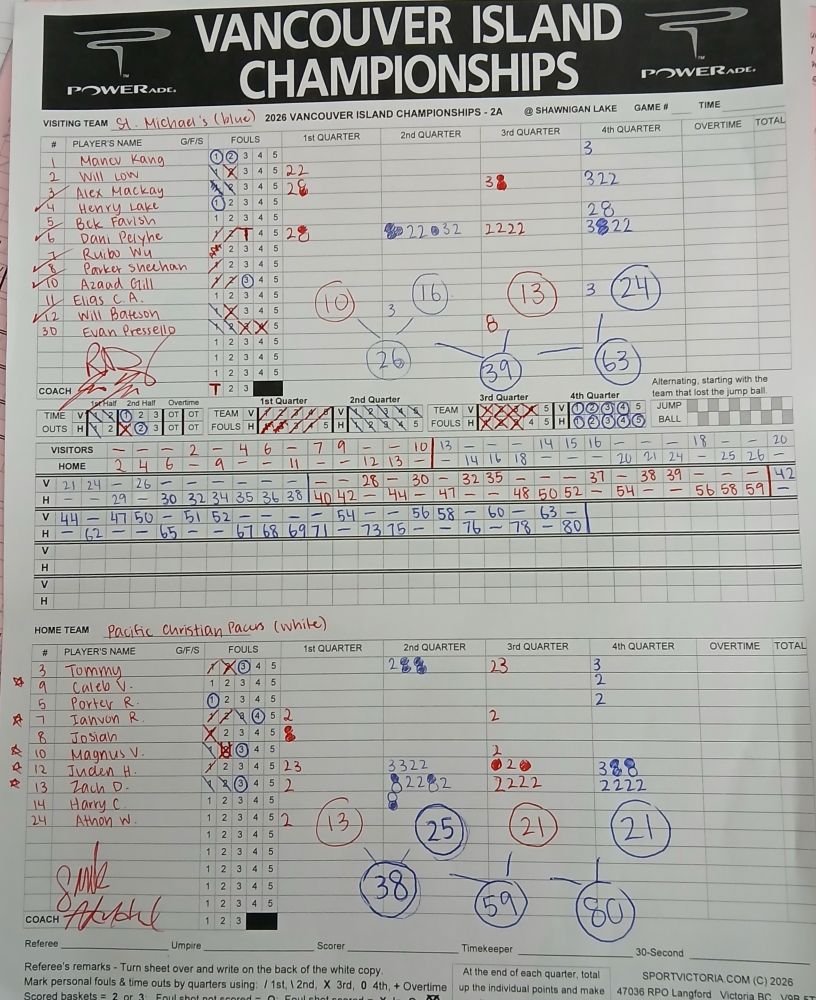 VANCOUVER ISLAND
CHAMPIONSHIPS
POWERADE.
POWERADE.
VISITING TEAM St. Michael's (blue) 2026 VANCOUVER ISLAND CHAMPIONSHIPS - 2A @ SHAWNIGAN LAKE GAME # TIME
# PLAYER'S NAME G/F/S FOULS 1st QUARTER 2nd QUARTER 3rd QUARTER 4th QUARTER OVERTIME TOTAL
1 Manev Kang 1 2 3 4 5 3
2 Will Low 3 4 5 22
3 Alex Mackay 3 4 5 28 38 322
4 Henry Lake 1 2 3 4 5
5 Bck Farish 1 2 3 4 5 28
6 Dani Pelyhe T 4 5 28 22 32 2222 3822
7 Ruibo Wu 2 3 4 5
8 Parker Sheehan 2 3 4 5
10 Azaad Gill 3 4 5
11 Elias C.A. 1 2 3 4 5
12 Will Bateson 3 4 5 3 3
30 Evan Pressello 5 8
10 16 13 24
26 39 63
1 2 3 4 5
1 2 3 4 5
1 2 3 4 5
COACH T 2 3
1st Half 2nd Half Overtime 1st Quarter 2nd Quarter 3rd Quarter 4th Quarter
Alternating, starting with the
team that lost the jump ball.
TIME V 1 2 1 2 3 OT OT TEAM V 1 2 3 4 5 V 1 2 3 4 5 TEAM V 5 V 1 2 3 4 5 JUMP
OUTS H 1 2 2 3 OT OT FOULS H 3 4 5 H 1 2 3 4 5 FOULS H 4 5 H 1 2 3 4 5 BALL
VISITORS – – – 2 – 4 6 – 7 9 – – 10 13 – – – 14 15 16 – – – 18 – – 20
HOME 2 4 6 – 9 – – 11 – – 12 13 – – 14 16 18 – – – 20 21 24 – 25 26 –
V 21 24 – 26 – – – – – – 28 – 30 – 32 35 – – – 37 – 38 39 – – – 42
H – – 29 – 30 32 34 35 36 38 40 42 – 44 – 47 – – 48 50 52 – 54 – – 56 58 59 –
V 44 – 47 50 – 51 52 – – – – 54 – – 56 58 – 60 – 63 –
H – 62 – – 65 – – 67 68 69 71 – 73 75 – – – 76 – 78 – 80
V
H
V
H
HOME TEAM Pacific Christian Pacers (white)
# PLAYER'S NAME G/F/S FOULS 1st QUARTER 2nd QUARTER 3rd QUARTER 4th QUARTER OVERTIME TOTAL
3 Tommy 3 4 5 288 23 3
9 Caleb V. 1 2 3 4 5 2
5 Porter R. 1 2 3 4 5 2
7 Iahvon R. 4 5 2 2
8 Josiah 2 3 4 5 8
10 Magnus V. 3 4 5 2
12 Juden H. 2 3 4 5 23 3322 2 388
13 Zach D. 3 4 5 2 82282 2222 2222
14 Harry C. 1 2 3 4 5 8
24 Athan W. 1 2 3 4 5 2
13 25 21 21
38 59 80
1 2 3 4 5
1 2 3 4 5
1 2 3 4 5
1 2 3 4 5
1 2 3 4 5
COACH 1 2 3
Referee Umpire Scorer Timekeeper 30-Second
Referee's remarks - Turn sheet over and write on the back of the white copy.
Mark personal fouls & time outs by using: / 1st, \ 2nd, X 3rd, O 4th, + Overtime
At the end of each quarter, total
up the individual points and make
SPORTVICTORIA.COM (C) 2026
47036 RPO Langford Victoria BC